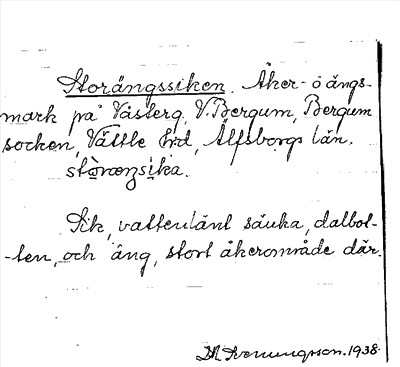 Storängssiken. Åker- o ängs-
mark på Västerg. V. Bergum, Bergum
socken, Vättle hrd, Älfsborgs län.
stòrænsìka.
Sik, vattenlänt sänka, dalbot-
-ten, och äng, stort åkerområde där.
1938.